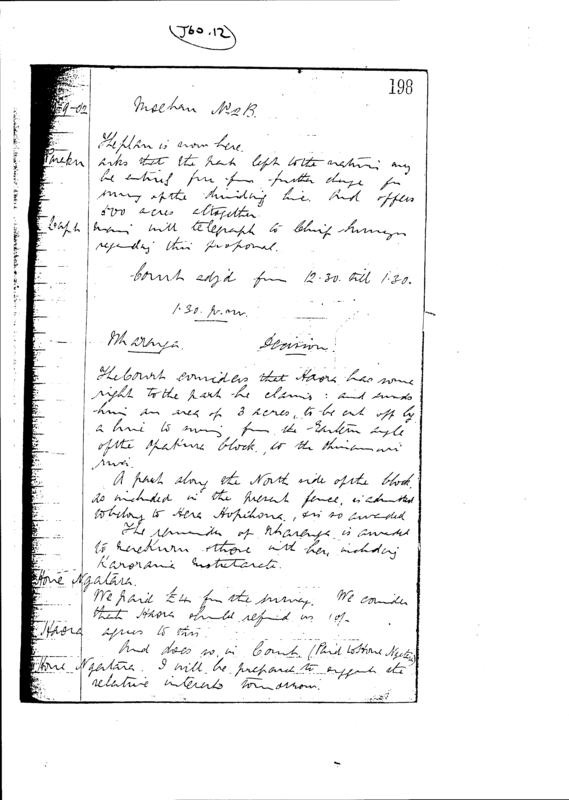 J60.12
198
-9-02
Moehau No 2B.
The plan is now here.
asks that the part left to the natives may
be entirely free from further charge for
survey of the dividing line. And offers
500 acres altogether.
will telegraph to Chief Surveyor
regarding this proposal.
Court adj'd from 12.30 till 1.30.
1.30. p.m.
Wharenga. Decision.
The Court considers that Haora has some
right to the part he claims: and awards
him an area of 3 acres, to be cut off by
a line to run from the Eastern angle
of the block, to the
A part along the North side of the block
as included in the present fence, is admitted
to belong to Hera Hopihona, & is so awarded
The remainder of Wharenga is awarded
to Mere Kuru & those with her, including
Hone Ngatara.
We paid £4 for the survey. We consider
that Haora should refund us 10/-
Haora agrees to this.
And does so in Court (Paid to Hone Ngatara)
Hone Ngatara. I will be prepared to suggest the
relative interests tomorrow.